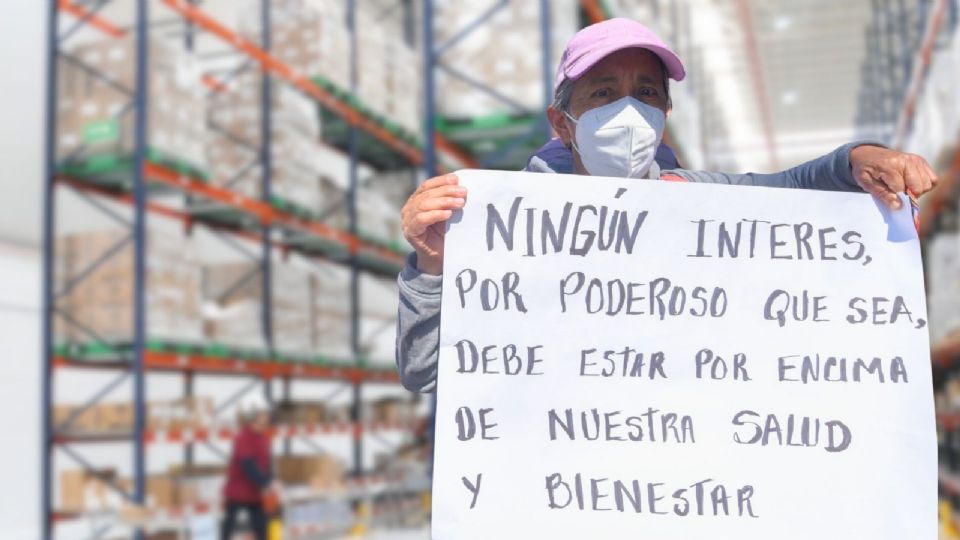 NINGÚN INTERES,
POR PODEROSO QUE SEA,
DEBE ESTAR POR ENCIMA
DE NUESTRA SALUD
Y BIENESTAR